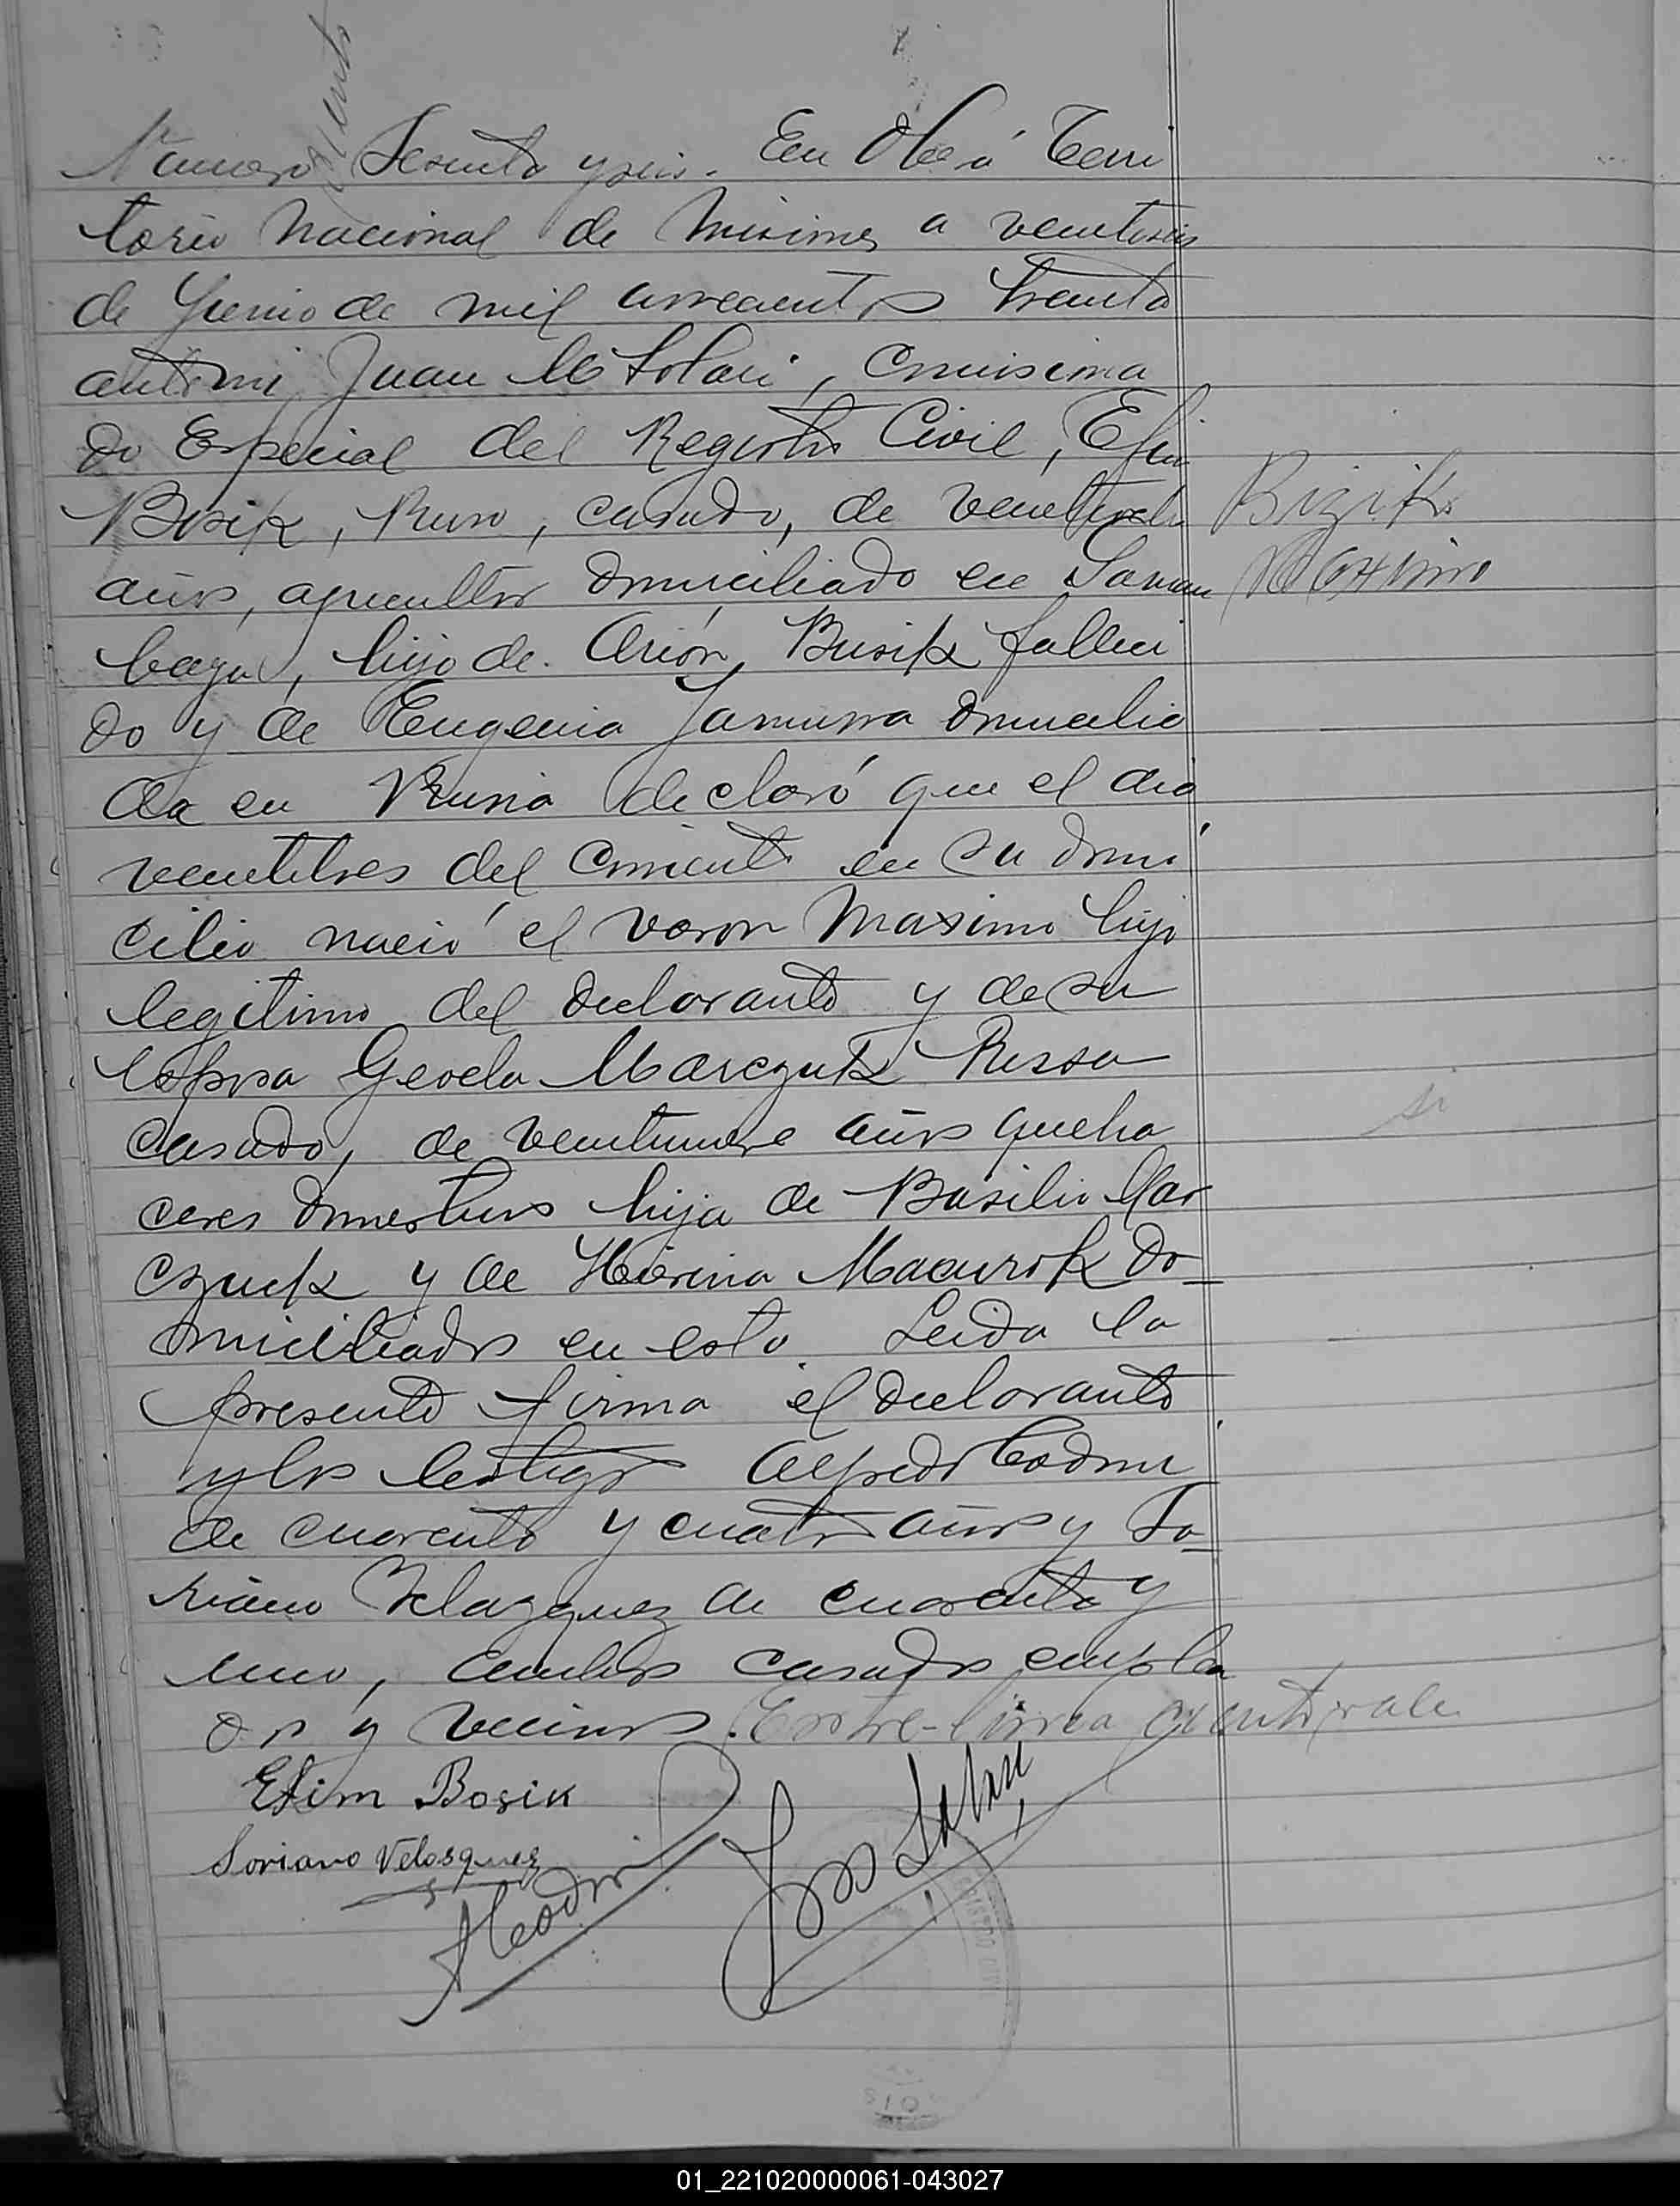 ciento
Número Sesenta y seis. En Oberá Terri
torio Nacional de Misiones a veintiseis
de Junio de mil novecientos treinta
ante mi Juan M Solari, Comisiona
do Especial del Registro Civil, Efim
Bosik, Ruso, casado, de veintiseis
años, agricultor domiciliado en Samam
baya, hijo de Arión Busik falleci
do y de Eugenia domicilia
da en Rusia declaró que el dia
veintitres del corriente en su domi
cilio nació el varon Maximo hijo
legitimo del declarante y de su
esposa Gecela Marczuk Russa
casada, de veintinueve años queha
ceres domesticos hija de Basilio Mar
czuk y de Macurok do-
miciliados en esta. Leida la
presente firma el declarante
y los testigos Alfredo Codini
de cuarenta y cuatro años y So-
riano Velazquez de cuarenta y
uno, ambos casados, emplea
dos y vecinos. Entre-linea ciento vale
Bizik
Maximo
si
Efim Bosik
Soriano Velosquez
ACodini
01_221020000061-043027